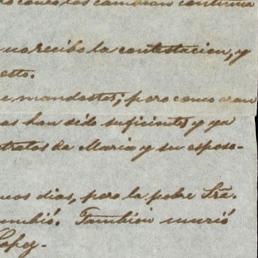 los cambian continua
no recibo la contestacion, y
esto.
mandastes; pero como eran
as han sido suficientes y ya
tratos de Maria y su esposo-
nos dias, pero la pobre Sra.
cumbió. Tambien murió
Lopez-